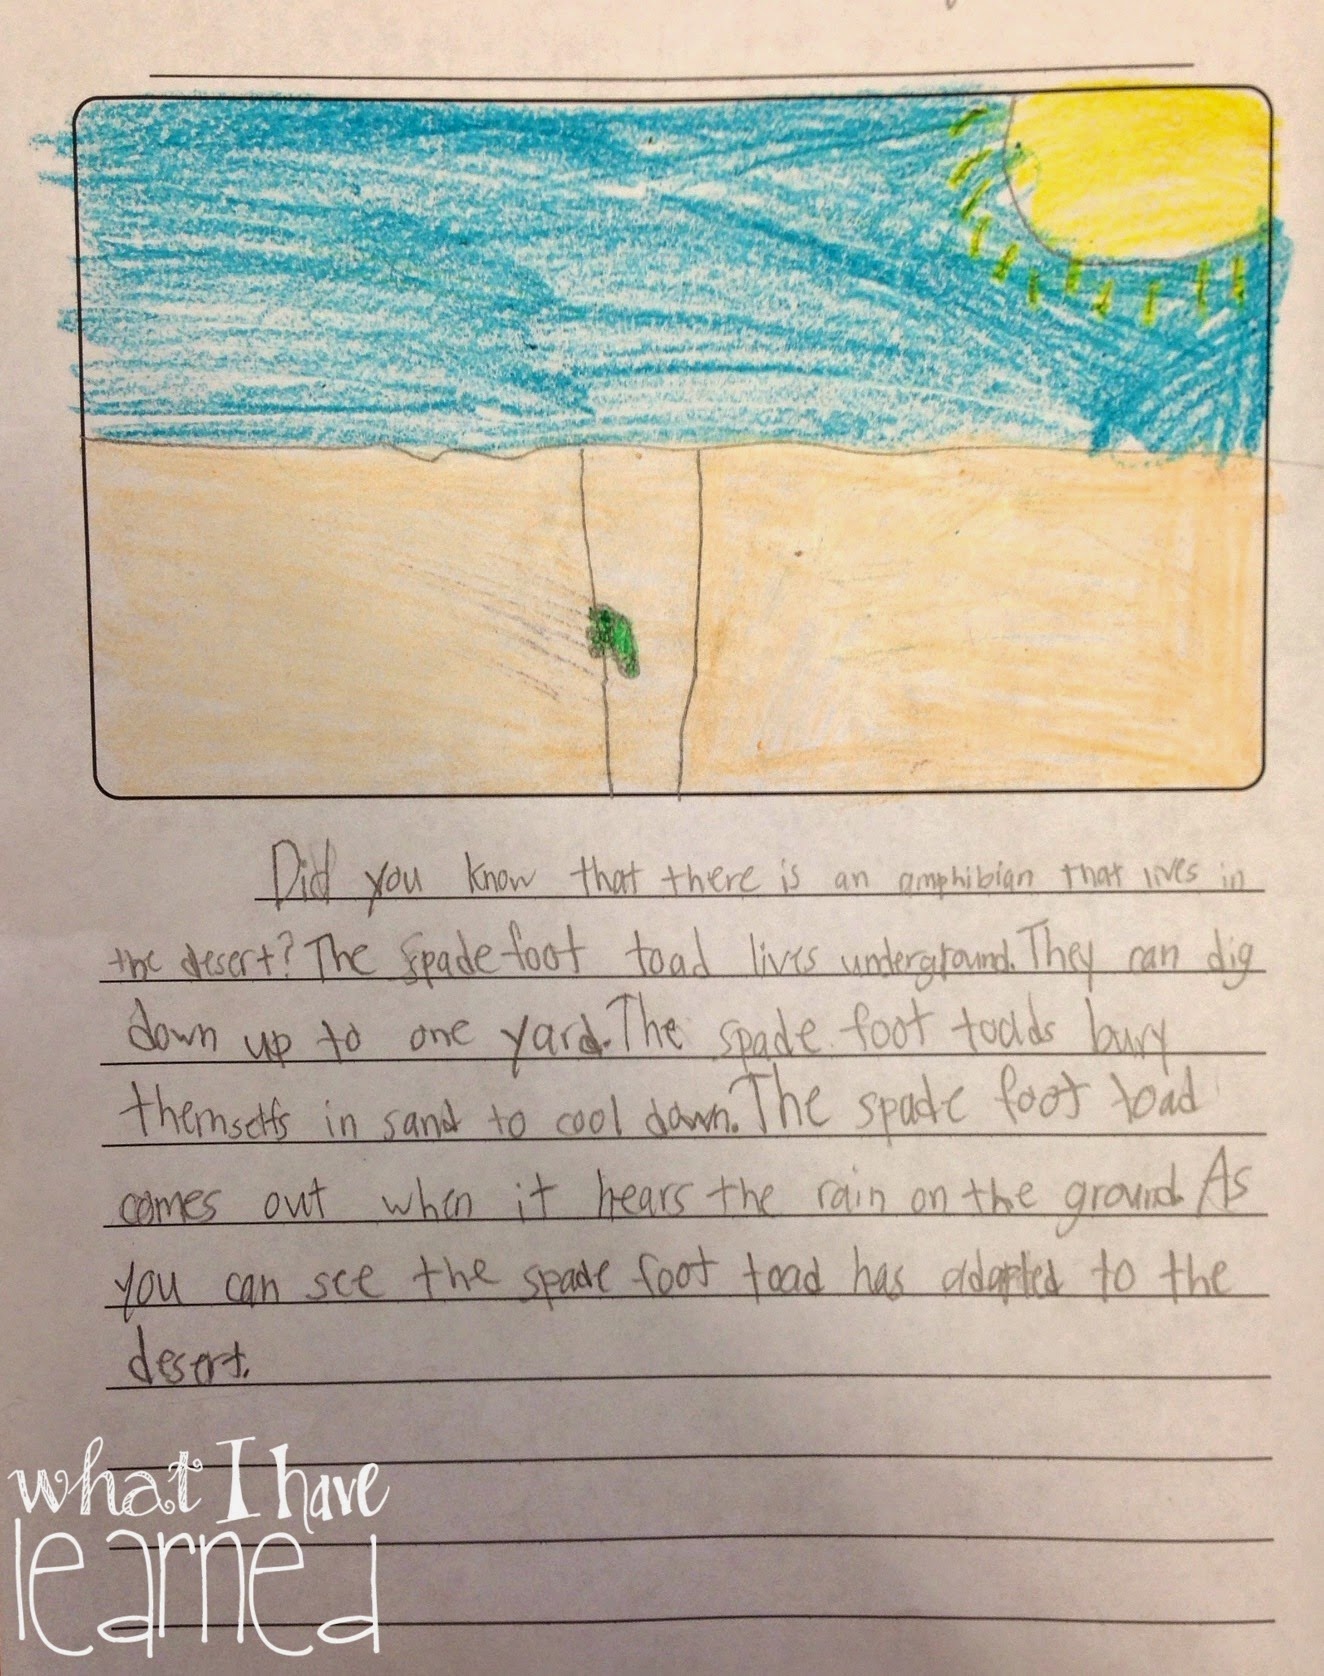 Did you know that there is an amphibian that lives in
the desert? The spade foot toad lives underground. They can dig
down up to one yard. The spade foot toads bury
themselfs in sand to cool down. The spade foot toad
comes out when it hears the rain on the ground. As
you can see the spade foot toad has adapted to the
desert.
what I have
learned